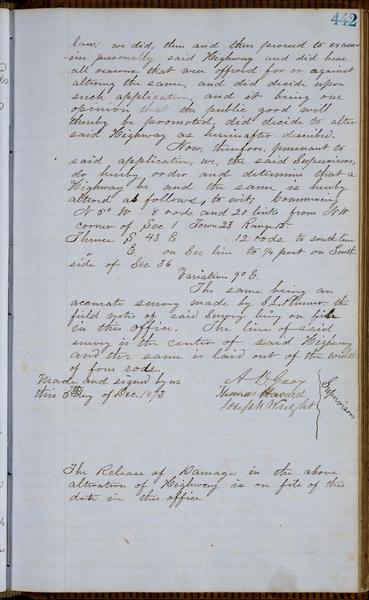 442
law; we did, then and there proceed to exam-
in personally said Highway and did hear
all reasons that were offered for or against
altering the same, and did decide upon
such application, and it being our
opinion that the public good will
thereby be promoted, did decide to alter
said Highway as herinafter described.
Now, therefore, pursuant to
said application, we, the said Supervisors,
do hereby order and determine that a
Highway be and the same is hereby
altered as follows, to wit; Commencing
N 5° W 8 rods and 20 links from N.W.
corner of Sec 1 Town 23 Range 15-
Thence S 48 E 12 rods to south line
" E on Sec line to 1/4 post on South
side of Sec 36
Variation 9° E.
The same being an
accurate survey made by the
field notes of said Survey being on file
in this office. The line of said
survey is the center of said Highway
and the same is laid out of the width
of four rods.
Made and signed by us
this 5th Day of Dec. 1873
A D Gray
Thomas Havard
Joseph Wright
Supervisors
The Release of Damages in the above
alteration of Highway is on file of this
date in this office